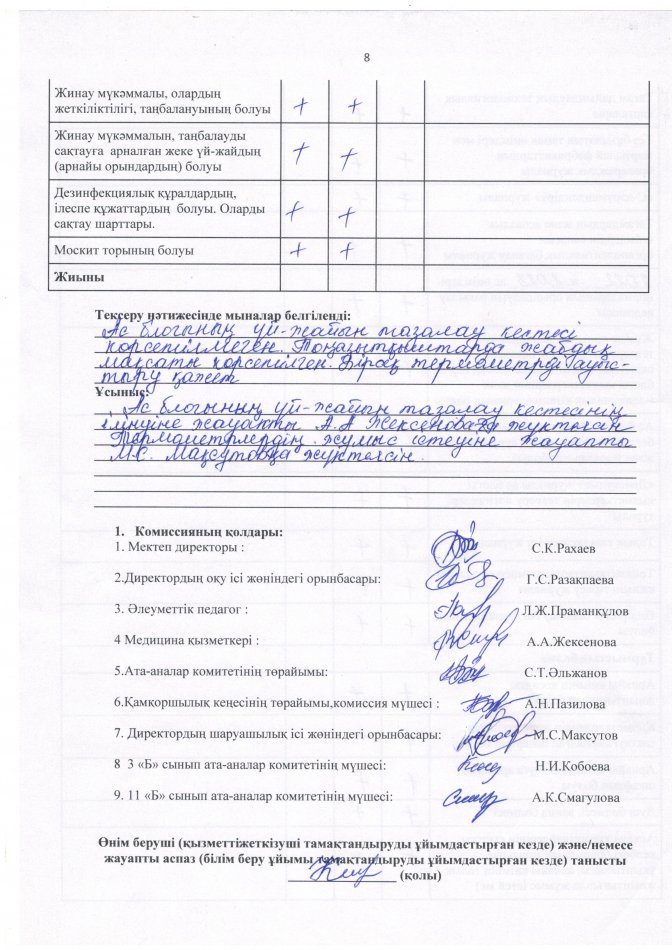 8
Жинау мүкәммалы, олардың
жеткіліктілігі, таңбалануының болуы + +
Жинау мүкәммалын, таңбалауды
сақтауға арналған жеке үй-жайдың
(арнайы орындардың) болуы + +
Дезинфекциялық құралдардың,
ілеспе құжаттардың болуы. Оларды
сақтау шарттары. + +
Москит торының болуы + +
Жиыны
Тексеру нәтижесінде мыналар белгіленді:
Ас блогының үй-жайын тазалау кестесі
көрсетілмеген. Тоңазытқыштарда жабдық
мақсаты көрсетілген. Бірақ термометрді ауыс-
тыру қажет
Ұсыныс:
Ас блогының үй-жайын тазалау кестесінің
ілінуіне жауапты А.А Жексенова жүктелген
Термометрлердің жұмыс істеуіне жауапты
М.С. Мақсутовқа жүктелсін.
1. Комиссияның қолдары:
1. Мектеп директоры : С.К.Рахаев
2.Директордың оқу ісі жөніндегі орынбасары: Г.С.Разақпаева
3. Әлеуметтік педагог : Л.Ж.Праманқұлов
4 Медицина қызметкері : А.А.Жексенова
5.Ата-аналар комитетінің төрайымы: С.Т.Әльжанов
6.Қамқоршылық кеңесінің төрайымы,комиссия мүшесі : А.Н.Пазилова
7. Директордың шаруашылық ісі жөніндегі орынбасары: М.С.Максутов
8 3 «Б» сынып ата-аналар комитетінің мүшесі: Н.И.Кобоева
9. 11 «Б» сынып ата-аналар комитетінің мүшесі: А.К.Смагулова
Өнім беруші (қызметтіжеткізуші тамақтандыруды ұйымдастырған кезде) және/немесе
жауапты аспаз (білім беру ұйымы тамақтандыруды ұйымдастырған кезде) танысты
(қолы)